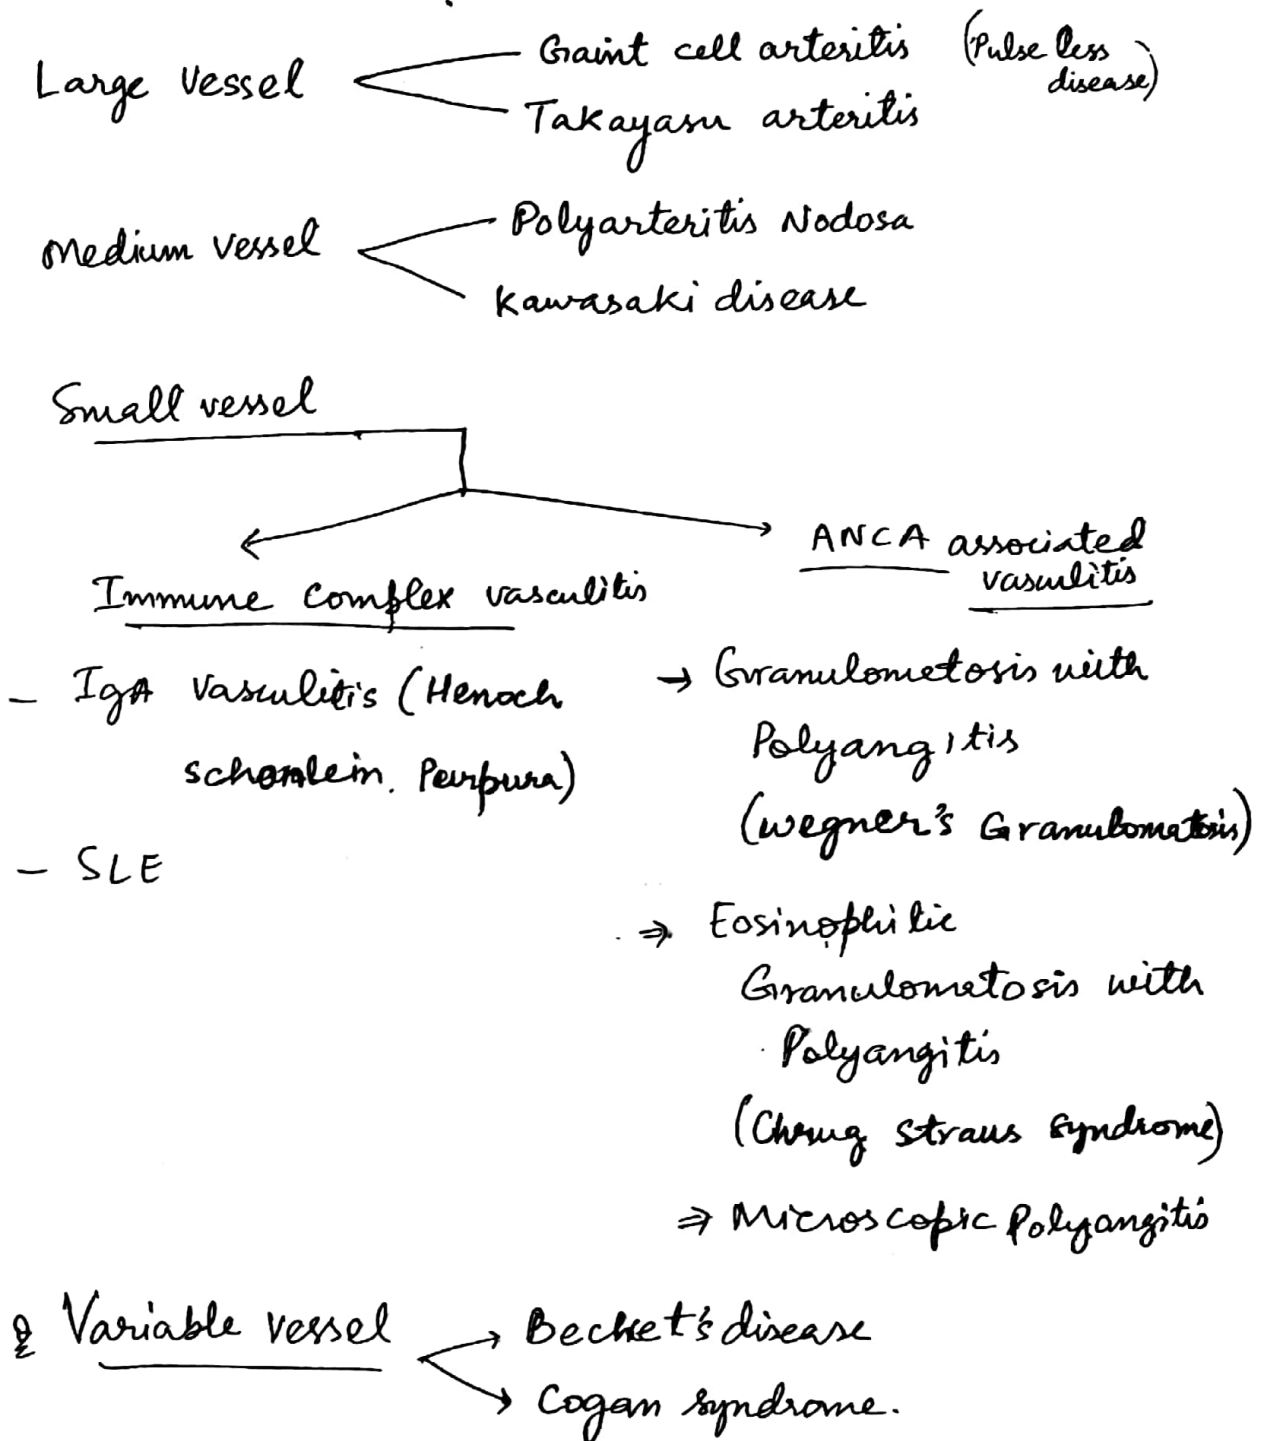 Large vessel
Gaint cell arteritis (Pulse less
disease)
Takayasu arteritis
Medium vessel
Polyarteritis Nodosa
Kawasaki disease
Small vessel
ANCA associated
vasculitis
Immune Complex vasculitis
- IgA Vasculitis (Henoch
schonlein. Purpura)
- SLE
→ Granulometosis with
Polyangitis
(wegner's Granulomatosis)
⇒ Eosinophilic
Granulometosis with
Polyangitis
(Chrug straus syndrome)
⇒ Microscopic Polyangitis
Variable vessel
Bechet's disease
Cogan syndrome.